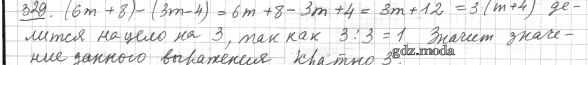 329. (6m + 8) - (3m - 4) = 6m + 8 - 3m + 4 = 3m + 12 = 3 (m + 4) де-
лится нацело на 3, так как 3 : 3 = 1. Значит значе-
ние данного выражения кратно 3.
gdz.moda